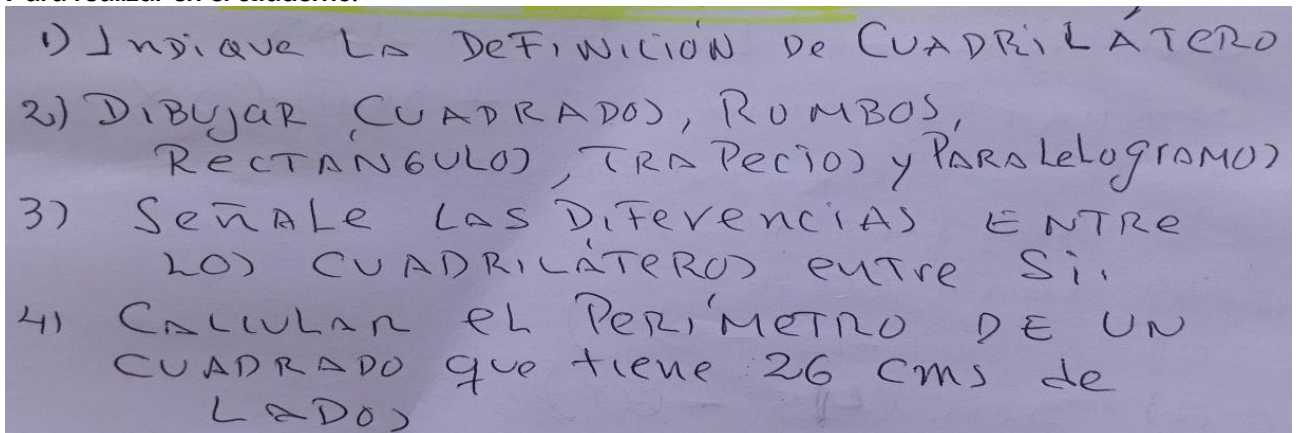 Para realizar en el cuaderno.
1) Indique La Definición De Cuadrilátero
2) Dibujar Cuadrados, Rombos,
Rectángulos, Trapecios y Paralelogramos
3) Señale Las Diferencias Entre
Los Cuadriláteros entre Si.
4) Calcular el Perímetro De Un
Cuadrado que tiene 26 cms de
Lados